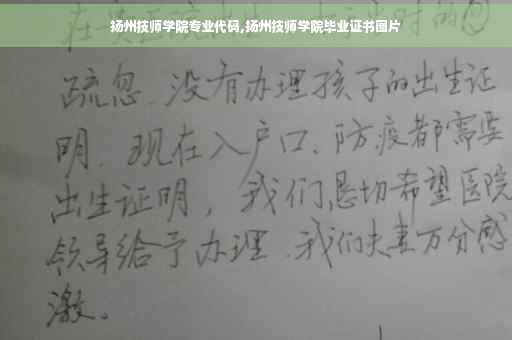 扬州技师学院专业代码,扬州技师学院毕业证书图片
疏忽.没有办理孩子的出生证
明.现在入户口、防疫都需要
出生证明，我们恳切希望医院
领导给予办理.我们夫妻万分感
激。